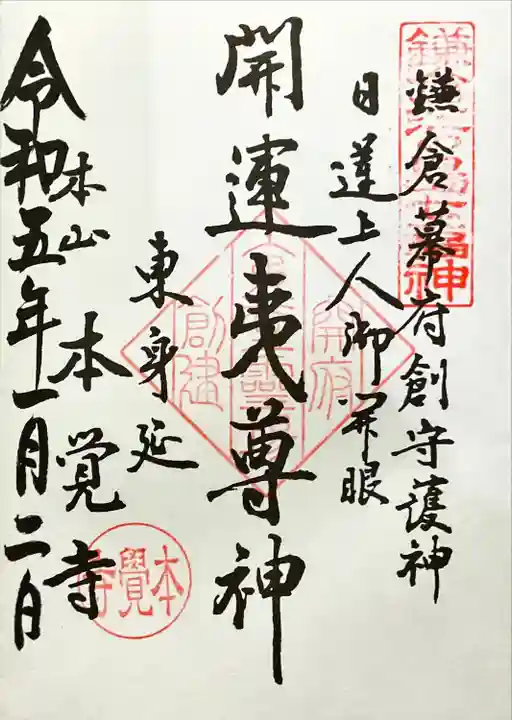 鎌倉幕府創守護神
日蓮上人御開眼
開運夷尊神
東身延
本山
本覚寺
令和五年一月二日
開府
創建
本覺寺